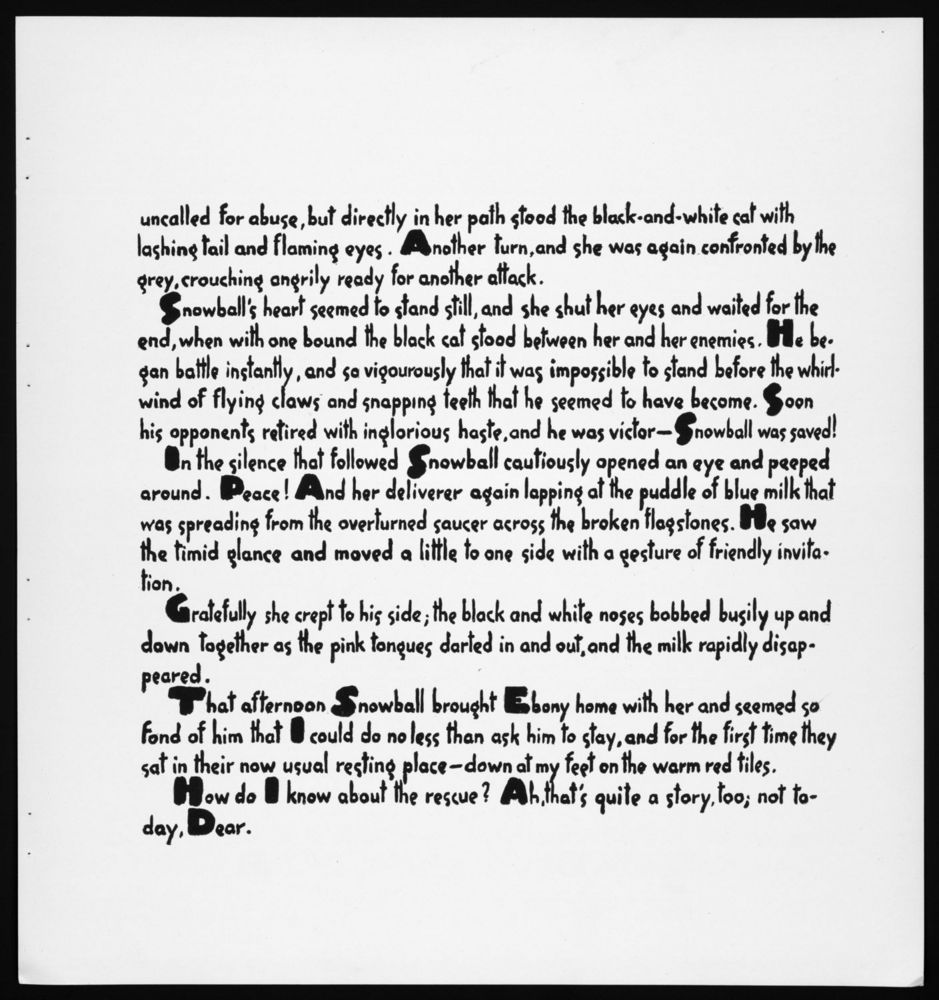 uncalled for abuse, but directly in her path stood the black-and-white cat with
lashing tail and flaming eyes. Another turn, and she was again confronted by the
grey, crouching angrily ready for another attack.
Snowball's heart seemed to stand still, and she shut her eyes and waited for the
end, when with one bound the black cat stood between her and her enemies. He be-
gan battle instantly, and so vigourously that it was impossible to stand before the whirl-
wind of flying claws and snapping teeth that he seemed to have become. Soon
his opponents retired with inglorious haste, and he was victor—Snowball was saved!
In the silence that followed Snowball cautiously opened an eye and peeped
around. Peace! And her deliverer again lapping at the puddle of blue milk that
was spreading from the overturned saucer across the broken flagstones. He saw
the timid glance and moved a little to one side with a gesture of friendly invita-
tion.
Gratefully she crept to his side; the black and white noses bobbed busily up and
down together as the pink tongues darted in and out, and the milk rapidly disap-
peared.
That afternoon Snowball brought Ebony home with her and seemed so
fond of him that I could do no less than ask him to stay, and for the first time they
sat in their now usual resting place—down at my feet on the warm red tiles.
How do I know about the rescue? Ah, that's quite a story, too; not to-
day, Dear.